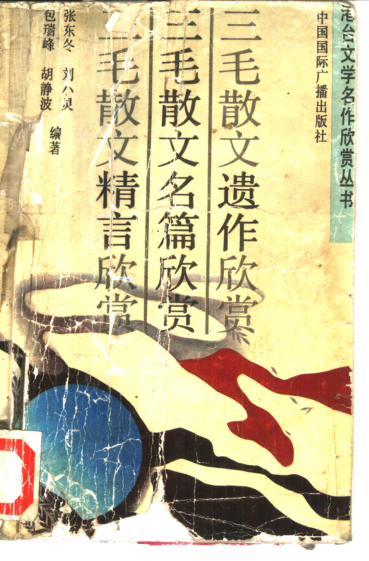 港台文学名作欣赏丛书
中国国际广播出版社
三毛散文遗作欣赏
三毛散文名篇欣赏
三毛散文精言欣赏
张东冬 刘小灵
包瑞峰 胡静波 编著